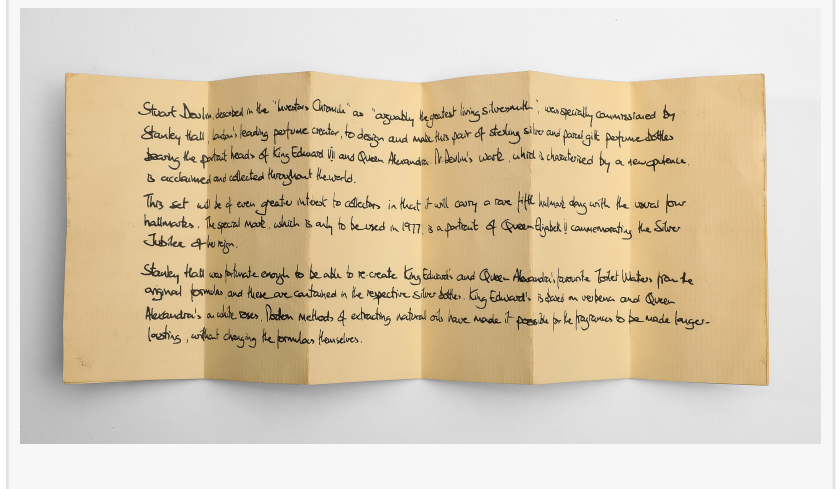 Stuart Devlin, described in the "Investors Chronicle" as "arguably the greatest living silversmith", was specially commissioned by
Stanley Hall London's leading perfume creator, to design and make this pair of sterling silver and parcel gilt perfume bottles
bearing the portrait heads of King Edward VII and Queen Alexandra. Mr. Devlin's work, which is characterised by a new opulence,
is acclaimed and collected throughout the world.
This set will be of even greater interest to collectors in that it will carry a rare fifth hallmark along with the usual four
hallmarks. The special mark, which is only to be used in 1977, is a portrait of Queen Elizabeth II commemorating the Silver
Jubilee of her reign.
Stanley Hall was fortunate enough to be able to re-create King Edward's and Queen Alexandra's favourite Toilet Waters from the
original formulas and these are contained in the respective silver bottles. King Edward's is based on verbena and Queen
Alexandra's on white roses. Modern methods of extracting natural oils have made it possible for the fragrances to be made longer-
lasting, without changing the formulas themselves.